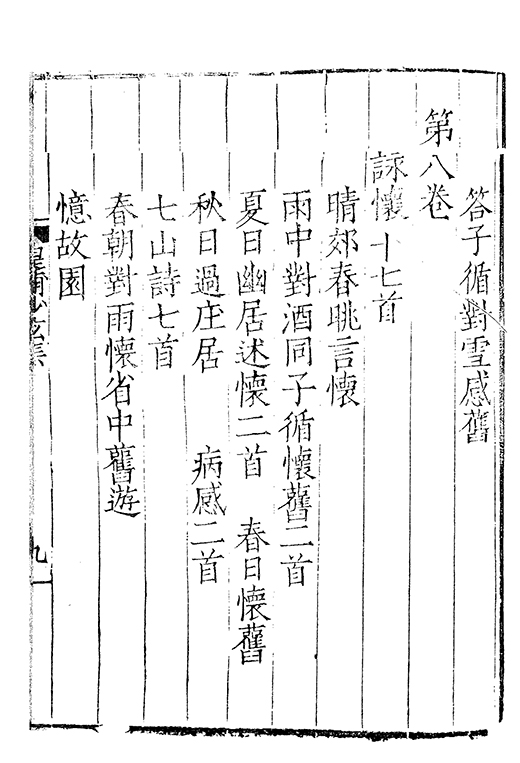 答子循對雪感舊
第八卷
詠懷十七首
晴郊春眺言懷
雨中對酒同子循懷舊二首
夏日幽居述懷二首　春日懷舊
秋日過庄居　病感二首
七山詩七首
春朝對雨懷省中舊遊
憶故園
皇甫少玄集
九